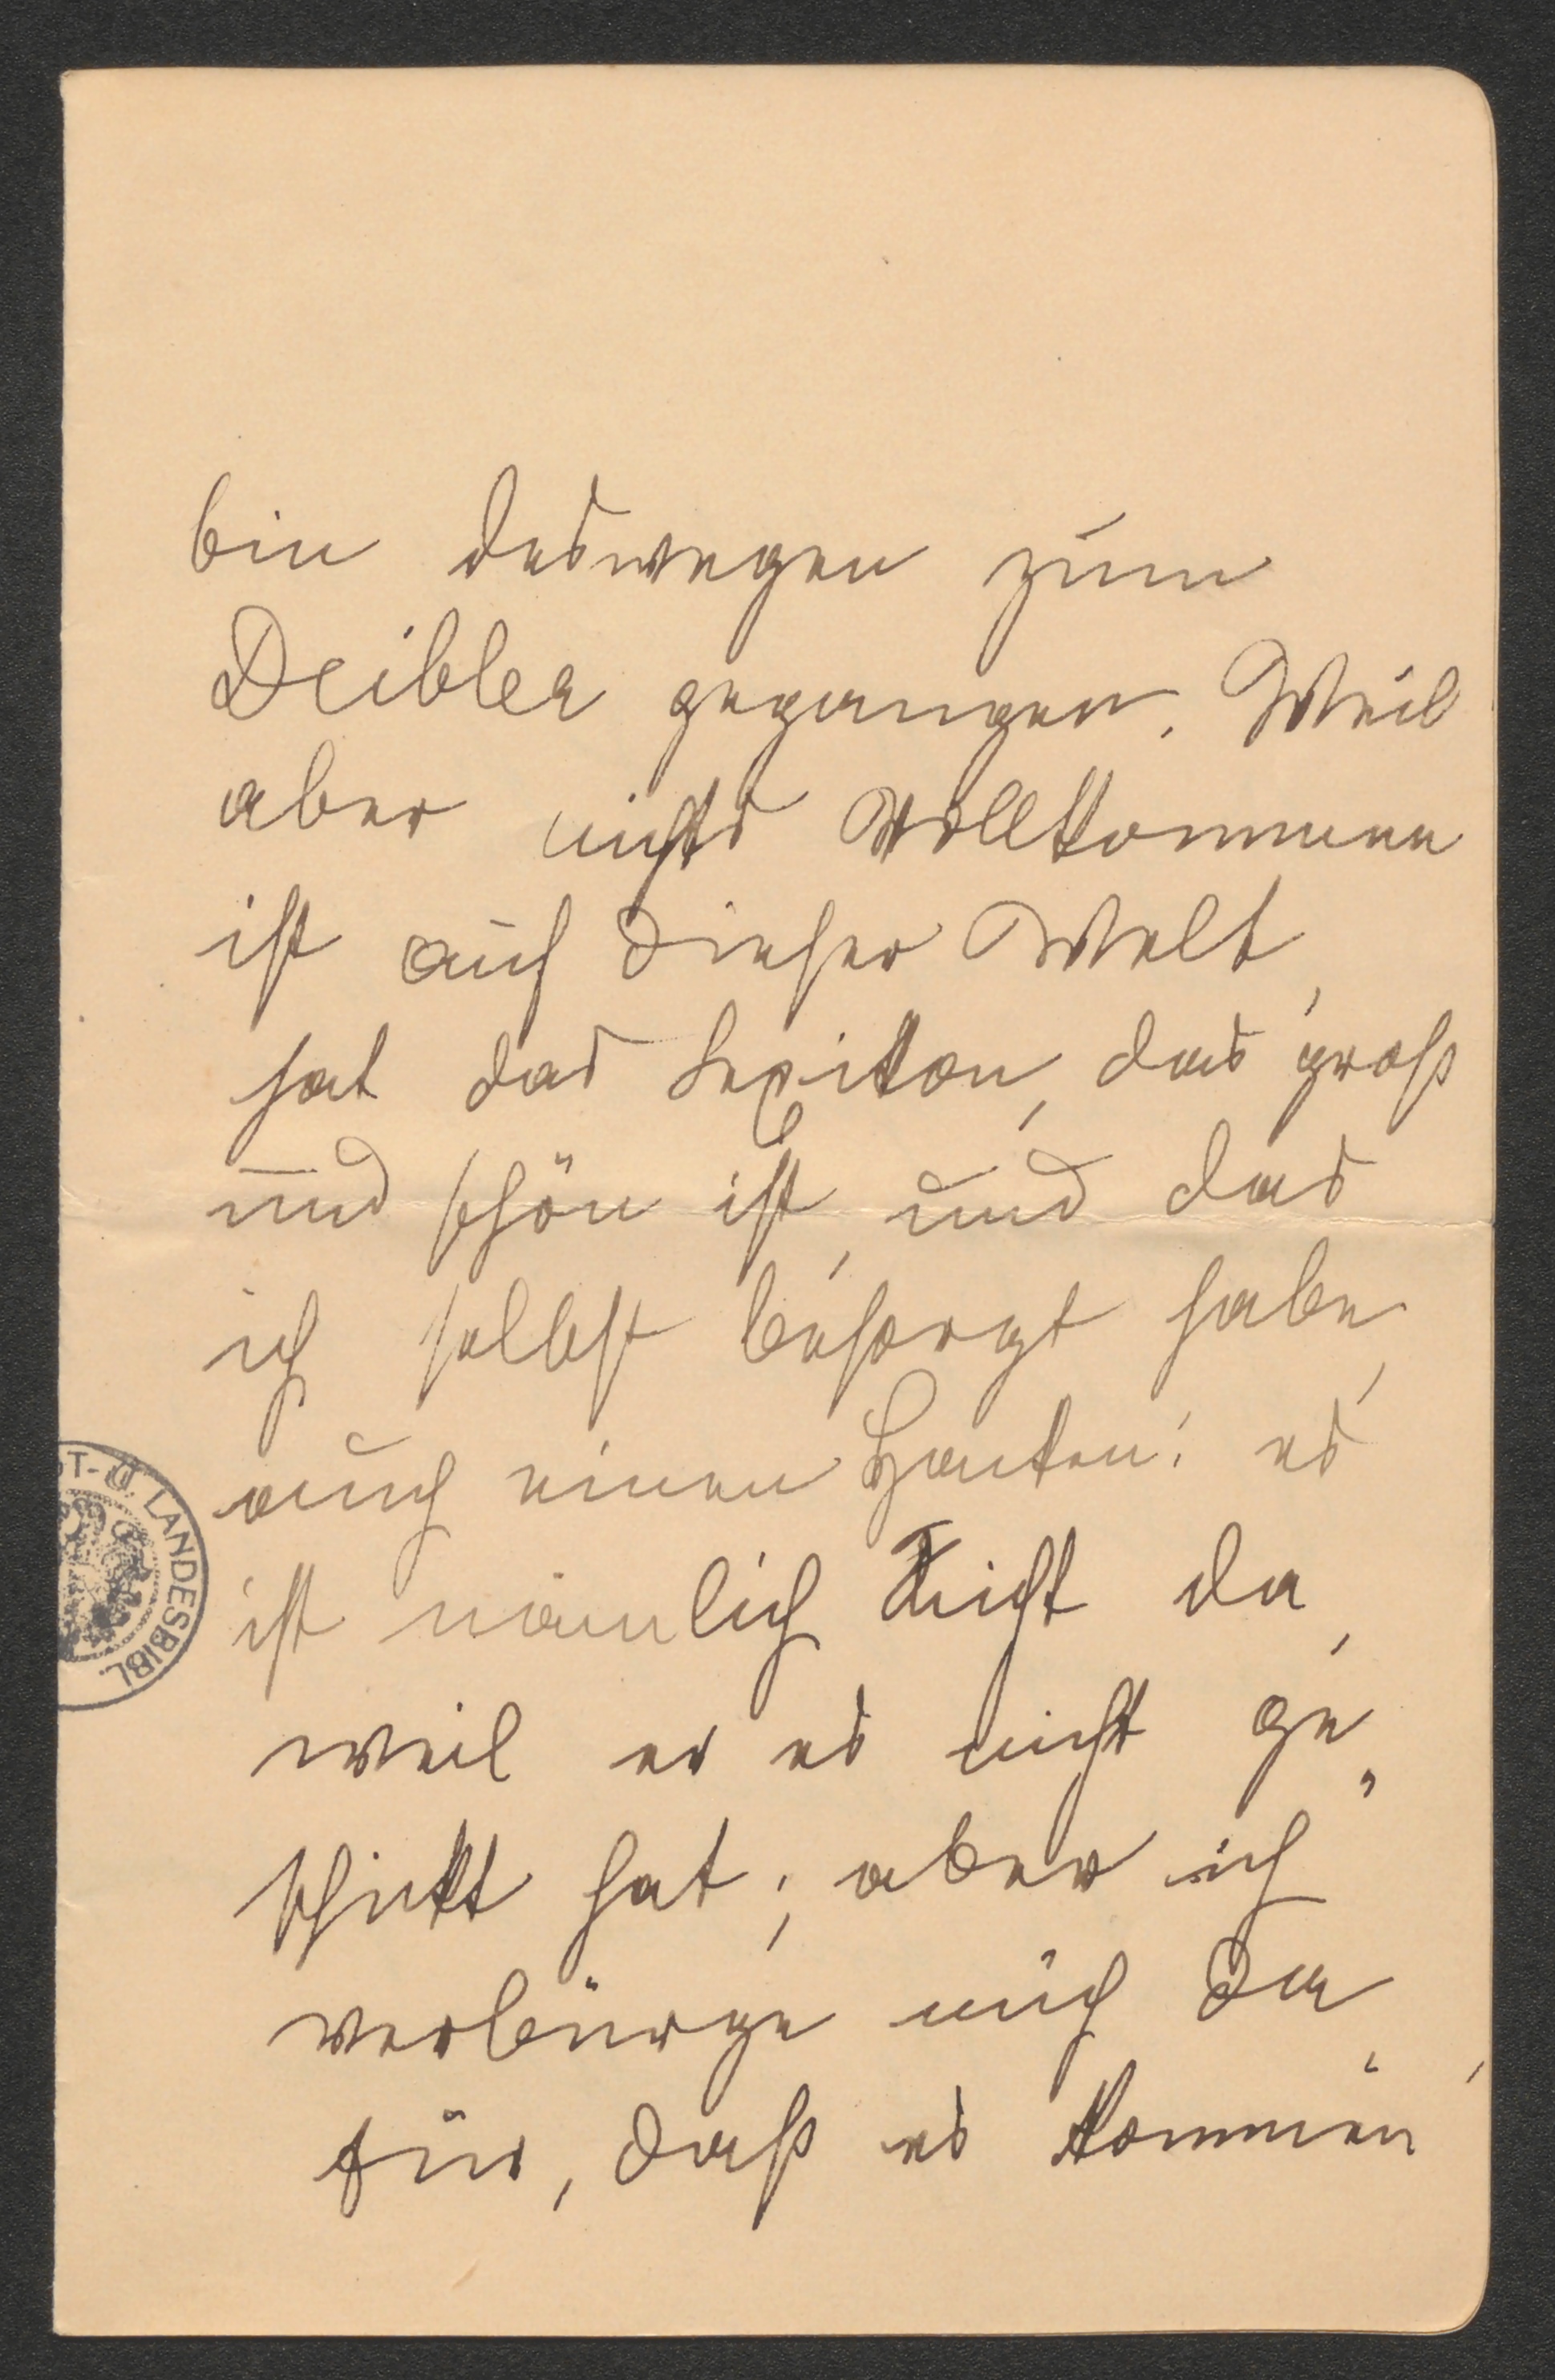 bin deswegen zum
Deibler gegangen. Weil
aber nichts Vollkommen
ist auf dieser Welt,
hat das Lexikon, das groß
und schön ist, und das
ich selbst besorgt habe,
auch einen Hacken: es
ist nämlich nicht da,
weil er es nicht ge„
schickt hat; aber ich
verbürge mich da„
für, daß es kommen
T- U. LANDESBIBL.